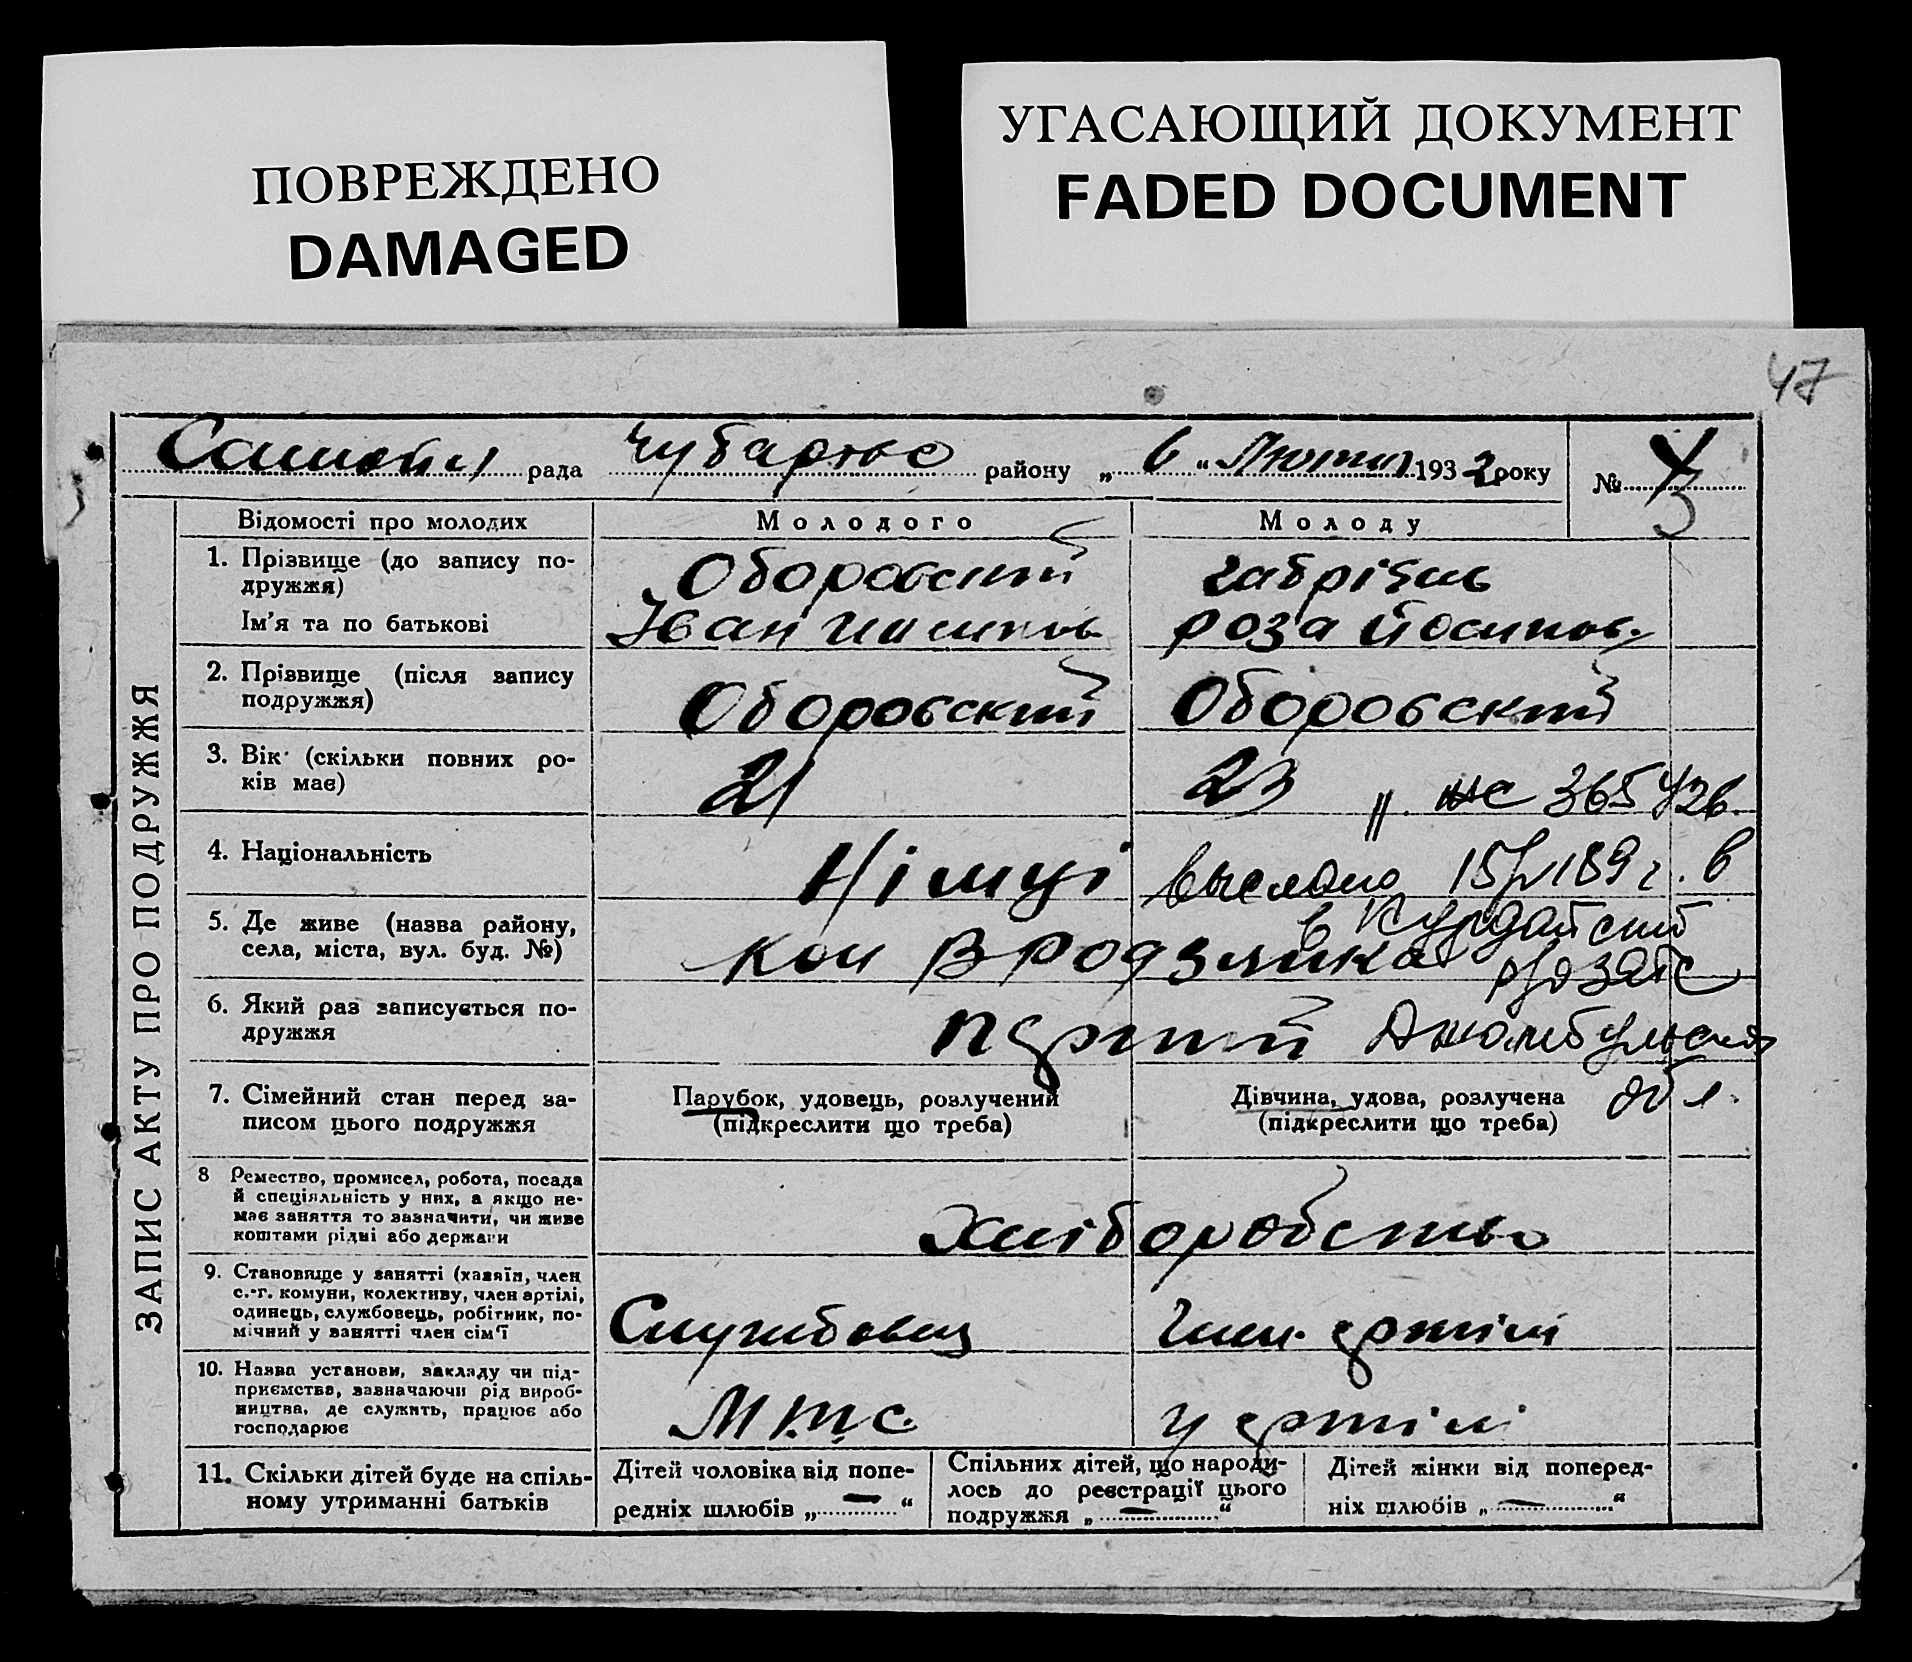 ПОВРЕЖДЕНО
DAMAGED
УГАСАЮЩИЙ ДОКУМЕНТ
FADED DOCUMENT
47
рада Чубарівс району „ 6 “ Лютня 1932 року №
ЗАПИС АКТУ ПРО ПОДРУЖЖЯ
Відомості про молодих
Молодого
Молоду
1. Прізвище (до запису по-
дружжя)
Ім’я та по батькові
Оборовский
Іван
Габріель
Роза Йосипов.
2. Прізвище (після запису
подружжя)
Оборовский
Оборовский
3. Вік (скільки повних ро-
ків має)
21
23
№ 365426
4. Національність
Німці
выслано 15/V 189 г. в
5. Де живе (назва району,
села, міста, вул. буд. №)
Кол
в Курдайский
6. Який раз записується по-
дружжя
перший
Джамбульской
обл.
7. Сімейний стан перед за-
писом цього подружжя
Парубок, удовець, розлучений
(підкреслити що треба)
Дівчина, удова, розлучена
(підкреслити що треба)
8 Ремество, промисел, робота, посада
й спеціяльність у них, а якщо не-
має заняття то зазначити, чи живе
коштами рідні або держави
Хліборобство
9. Становище у занятті (хазяїн, член
с.-г. комуни, колективу, член артілі,
одинець, службовець, робітник, по-
мічний у занятті член сім’ї
Службовец
Член артілі
10. Назва установи, закладу чи під-
приємства, зазначаючи рід вироб-
ництва, де служить, працює або
господарює
М.Т.С.
у артілі
11. Скільки дітей буде на спіль-
ному утриманні батьків
Дітей чоловіка від попе-
редніх шлюбів „ — “
Спільних дітей, що народи-
лось до реєстрації цього
подружжя „ — “
Дітей жінки від поперед-
ніх шлюбів „ — “